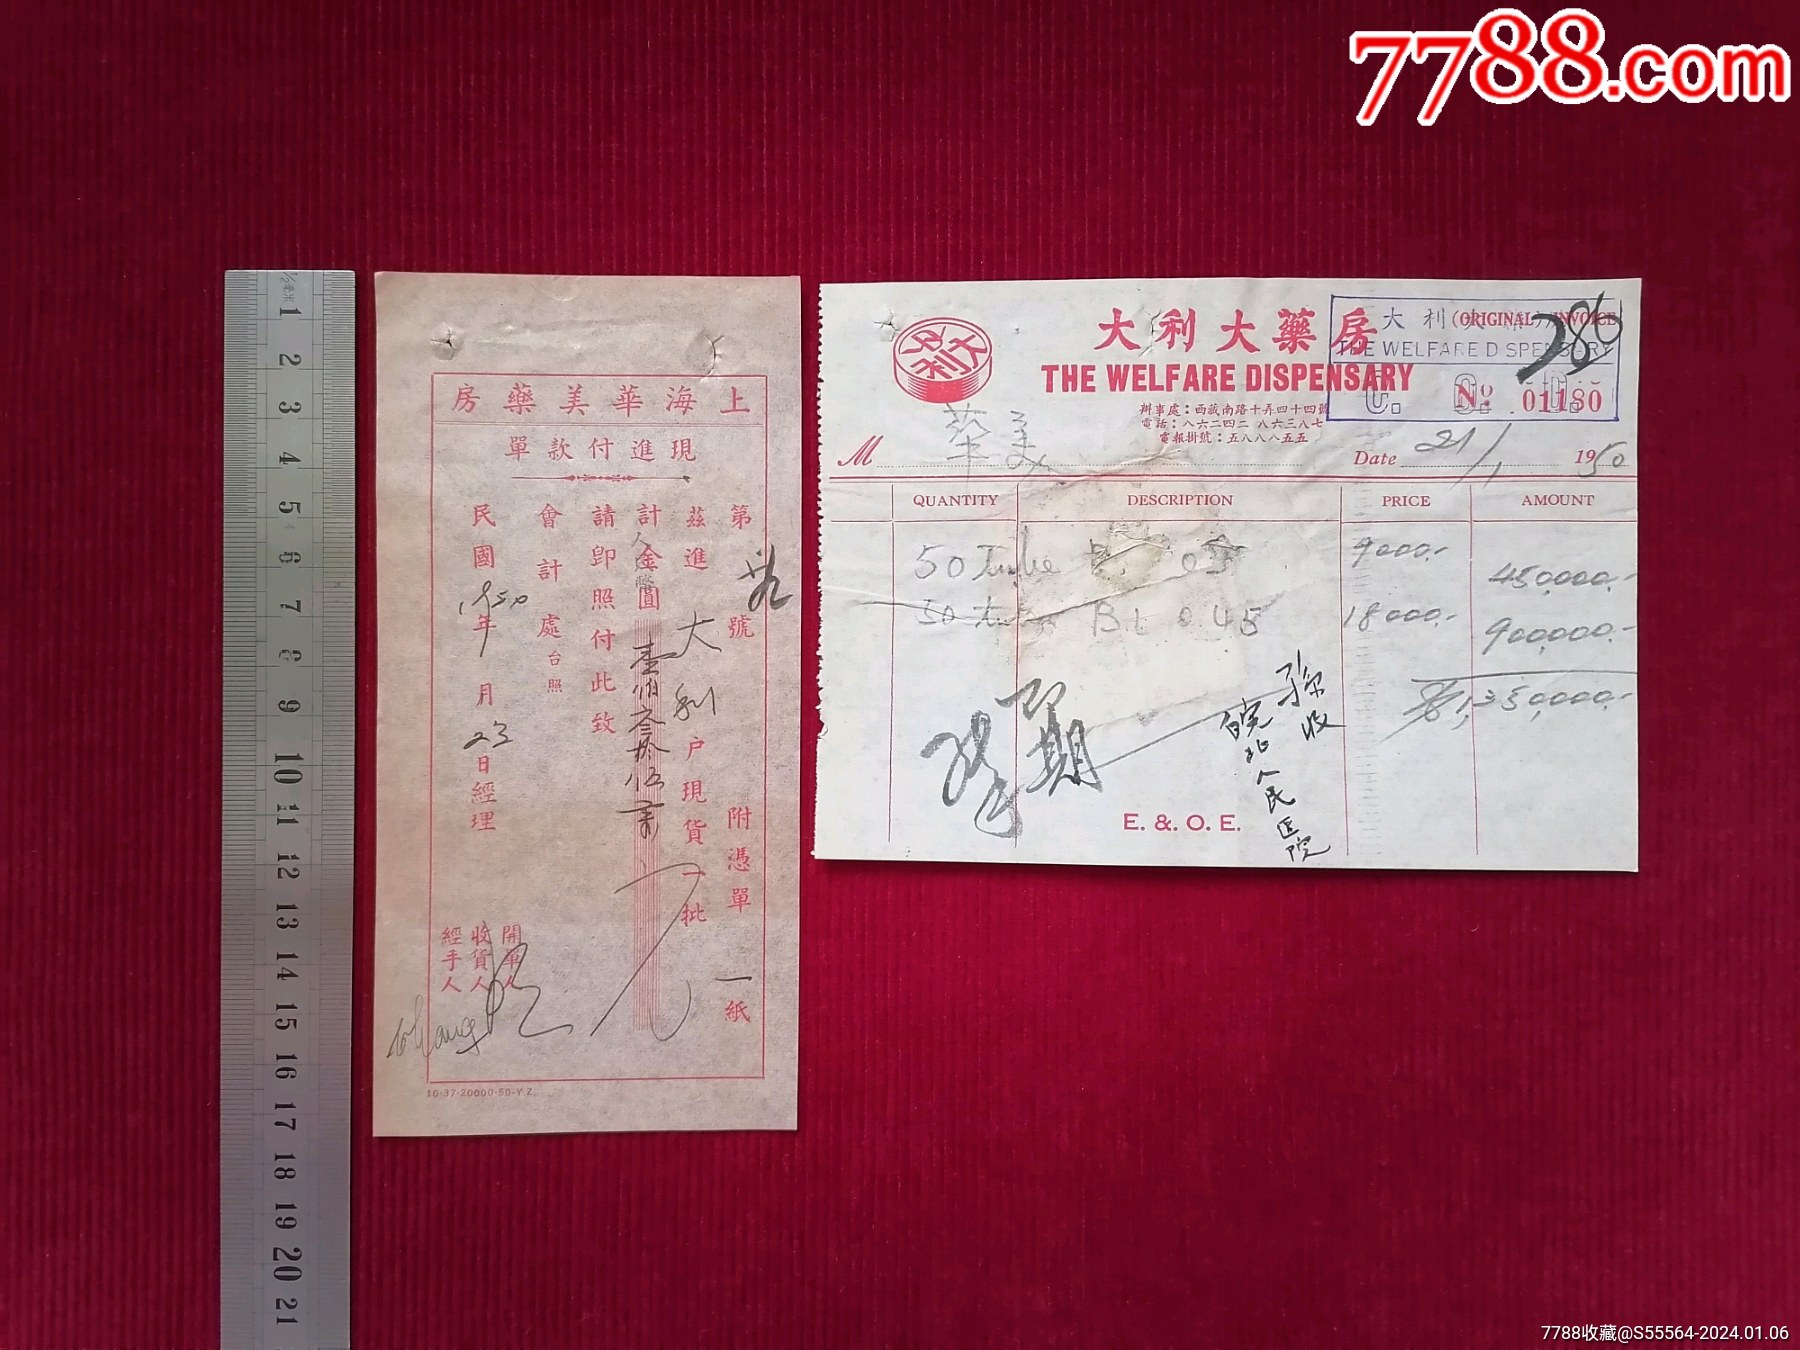 7788.com
上海華美藥房
現進付款單
第 號 附憑單一紙
茲進 大利 户現貨一批
計金圓 壹佰叁拾伍萬
請卽照付此致
會計處台照
民國1950年 月23日經理
開單人
收貨人
經手人
10-37-20000-50-Y.Z.
大利大藥房
THE WELFARE DISPENSARY
辦事處：西藏南路十弄四十四號
電話：八六二四二 八六三八七
電報掛號：五八八八五五
(ORIGINAL) INVOICE
大利
THE WELFARE DISPENSARY
286
Nº 01180
M 華美
Date 21/1 1950
QUANTITY DESCRIPTION PRICE AMOUNT
50 Tube 9000.- 450,000.-
50 B1 18000.- 900,000.-
1,350,000.-
孫收
皖北人民医院
期
E. & O. E.
1 2 3 4 5 6 7 8 9 10 11 12 13 14 15 16 17 18 19 20 21
7788收藏@S55564-2024.01.06